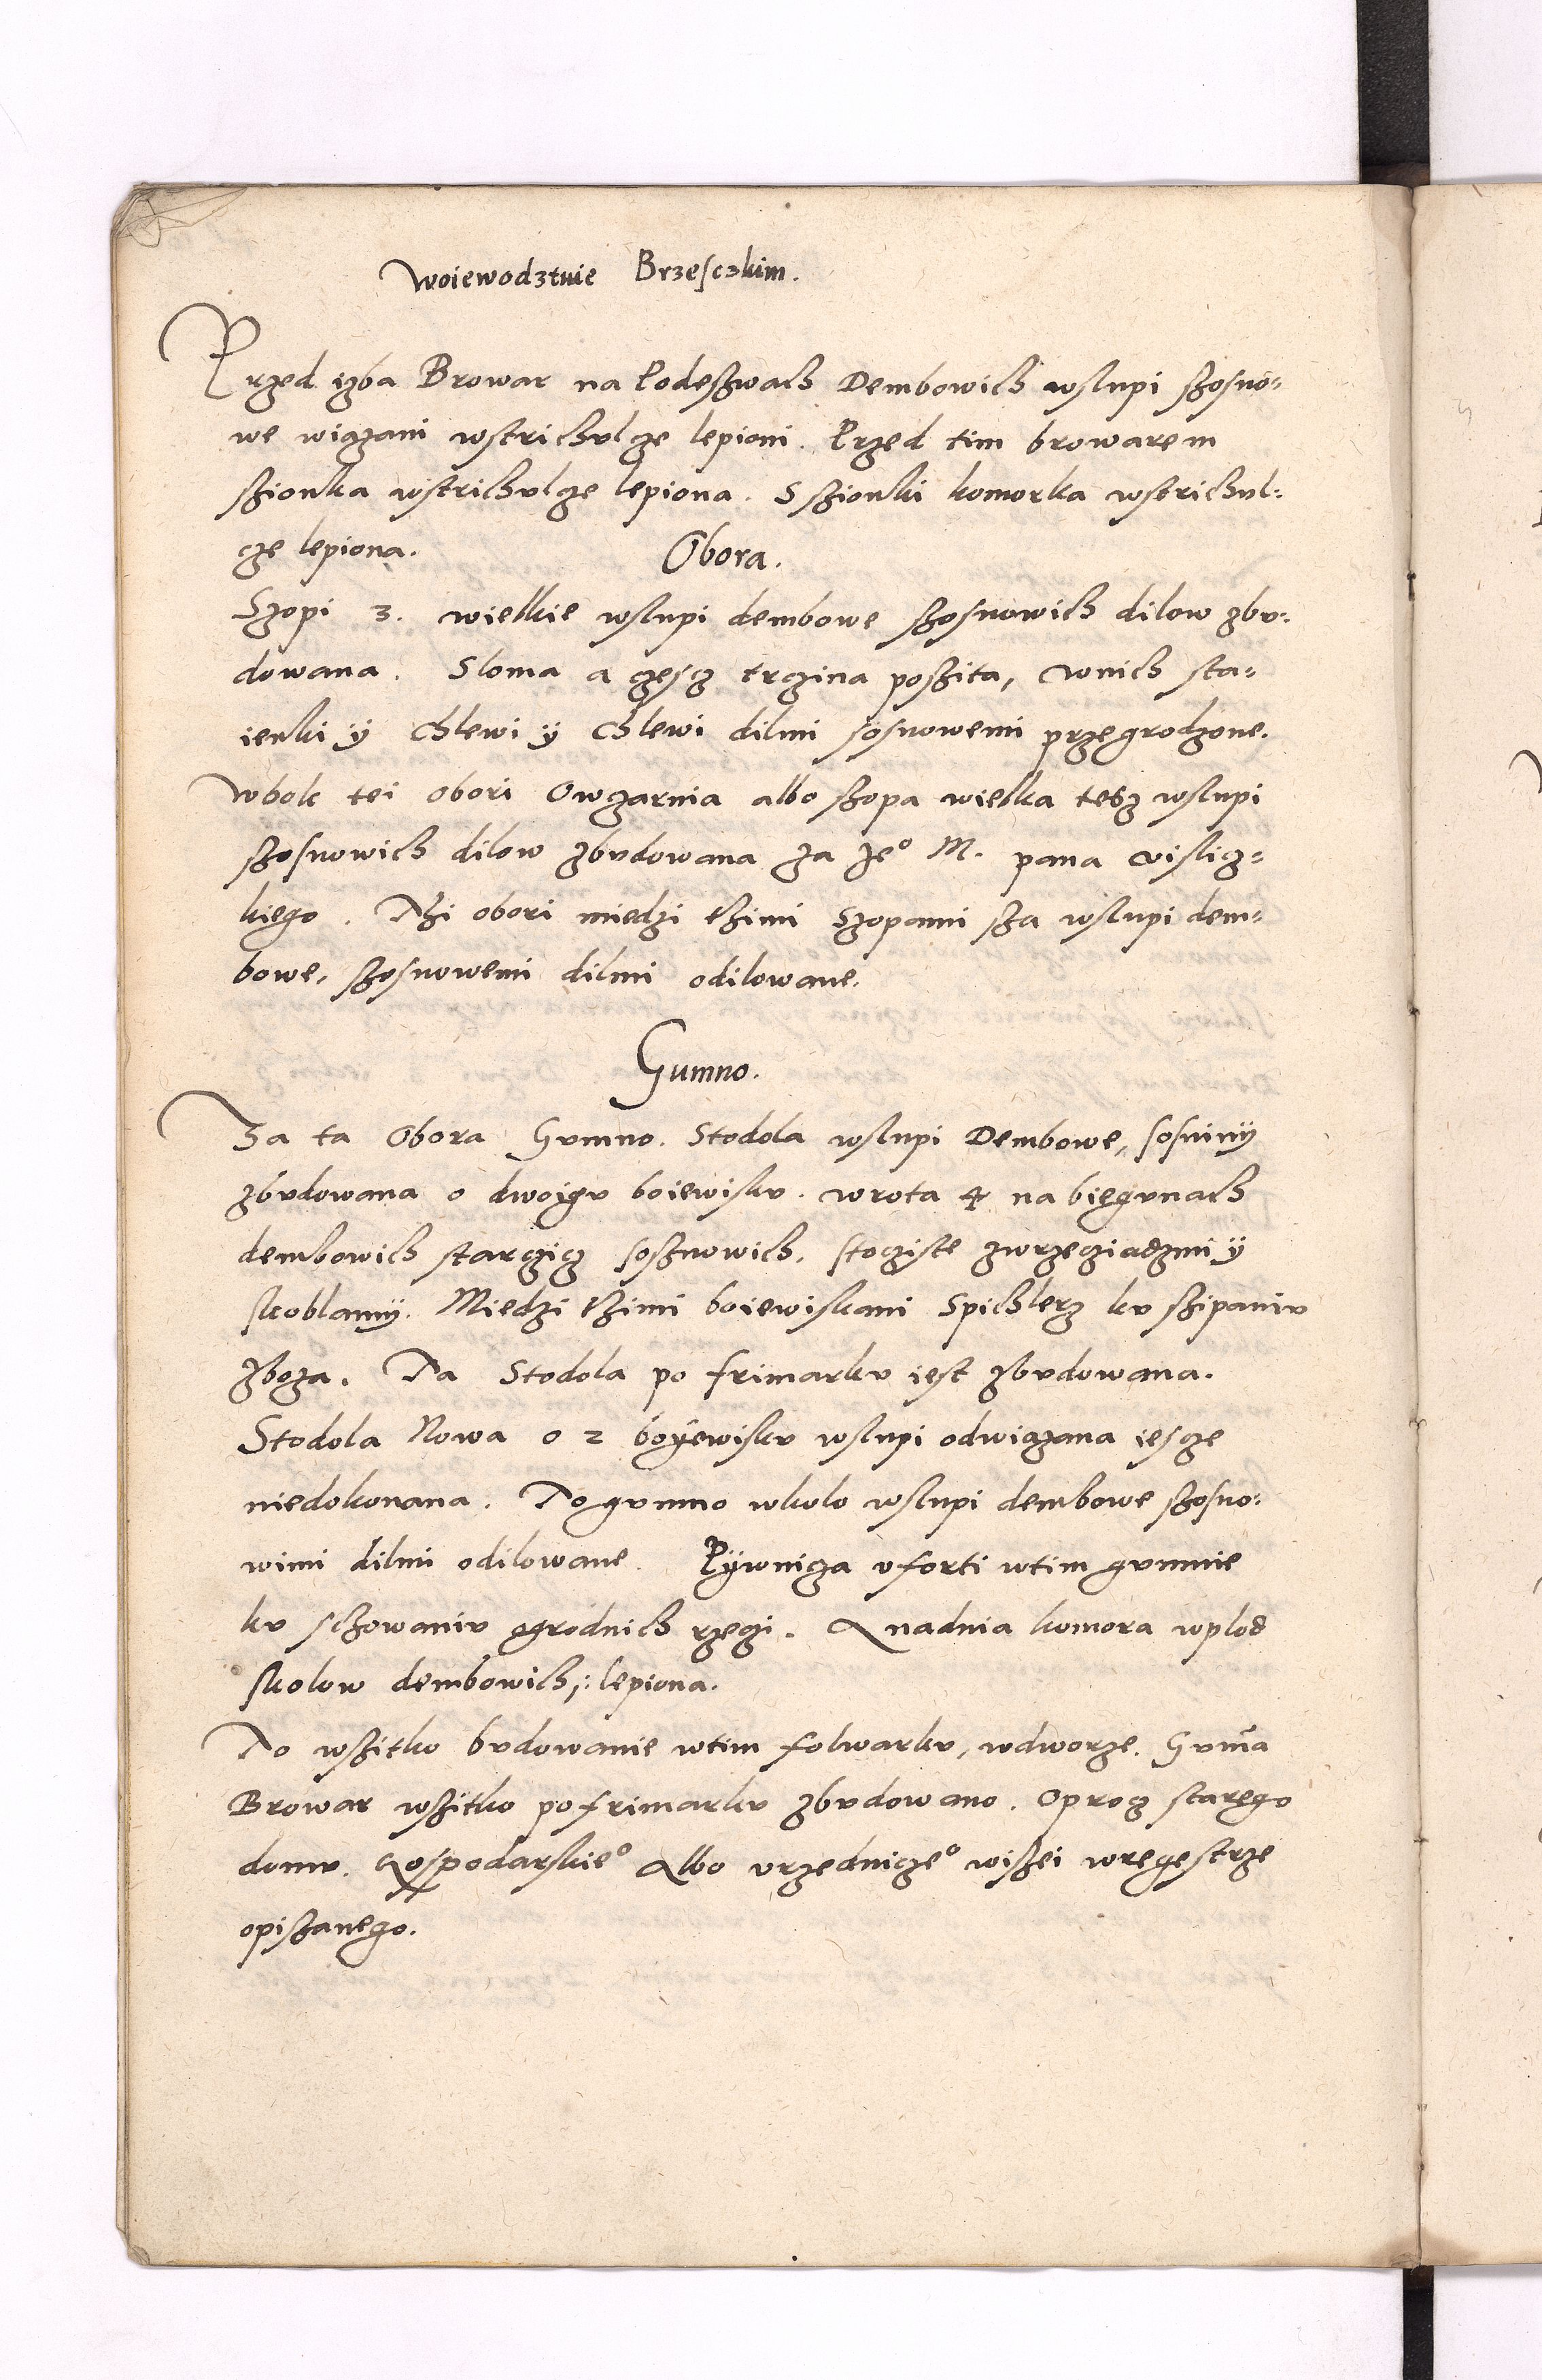 Woiewodztwie Brzesczkim.
Przed izba Browar na Podeszwach Dembowich wslupi szosno-
we wiązani wstrichulcze lepioni. Przed tim browarem
szionka wstrichulcze lepiona. S szionki komorka wstrichul-
cze lepiona. Obora.
Szopi 3. wielkie wslupi dembowe szosnowich dilow zbu-
dowana. Sloma a czescz trczina poszita, wnich sta-
ienki y Chlewi y Chlewi dilmi sosnowemi przegrodzone.
Wbok tei obori Owczarnia albo szopa wielka tesz wslupi
szosnowich dilow zbudowana za Jeº M. pana vislicz-
kiego. Thi obori miedzi thimi Szopami sza wslupi dem-
bowe, szosnowemi dilmi odilowane.
Gumno.
Za ta Obora Gumno. Stodola wslupi Dembowe, sosniny
zbudowana o dwoigu boiewisku. wrota 4 na biegunach
dembowich starczicz sosznowich, stocziste zwrzecziadzmi y
skoblamy. Miedzi thimi boiewiskami Spichlerz ku szipaniu
zboza. Ta Stodola po frimarku iest zbudowana.
Stodola Nowa o 2 boyewisku wslupi odwiązana iescze
niedokonana. To gumno wkolo wslupi dembowe szosno-
wimi dilmi odilowane. Pywnicza uforti wtim gumnie
ku schowaniu ogrodnich rzeczi. A nadnia komora wplot
skolow dembowich, lepiona.
To wszitko budowanie wtim folwarku, wdworze. Gum̃a
Browar wszitko po frimarku zbudowano. Oprocz starego
domu. Gospodarskieº Albo urzedniczeº wiszei wregestrze
opiszanego.